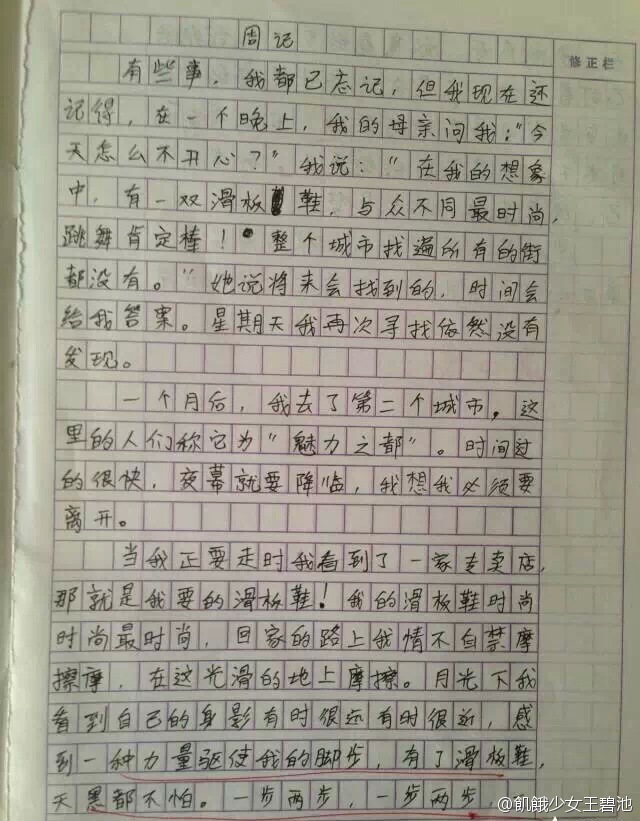 周记
修正栏
有些事，我都已忘记，但我现在还
记得，在一个晚上，我的母亲问我："今
天怎么不开心？"我说："在我的想象
中，有一双滑板鞋，与众不同最时尚，
跳舞肯定棒！整个城市找遍所有的街
都没有。"她说将来会找到的，时间会
给我答案。星期天我再次寻找依然没有
发现。
一个月后，我去了第二个城市。这
里的人们称它为"魅力之都"。时间过
的很快，夜幕就要降临，我想我必须要
离开。
当我正要走时我看到了一家专卖店，
那就是我要的滑板鞋！我的滑板鞋时尚
时尚最时尚，回家的路上我情不自禁摩
擦摩，在这光滑的地上摩擦。月光下我
看到自己的身影有时很远有时很近，感
到一种力量驱使我的脚步，有了滑板鞋，
天黑都不怕。一步两步，一步两步，
@飢餓少女王碧池